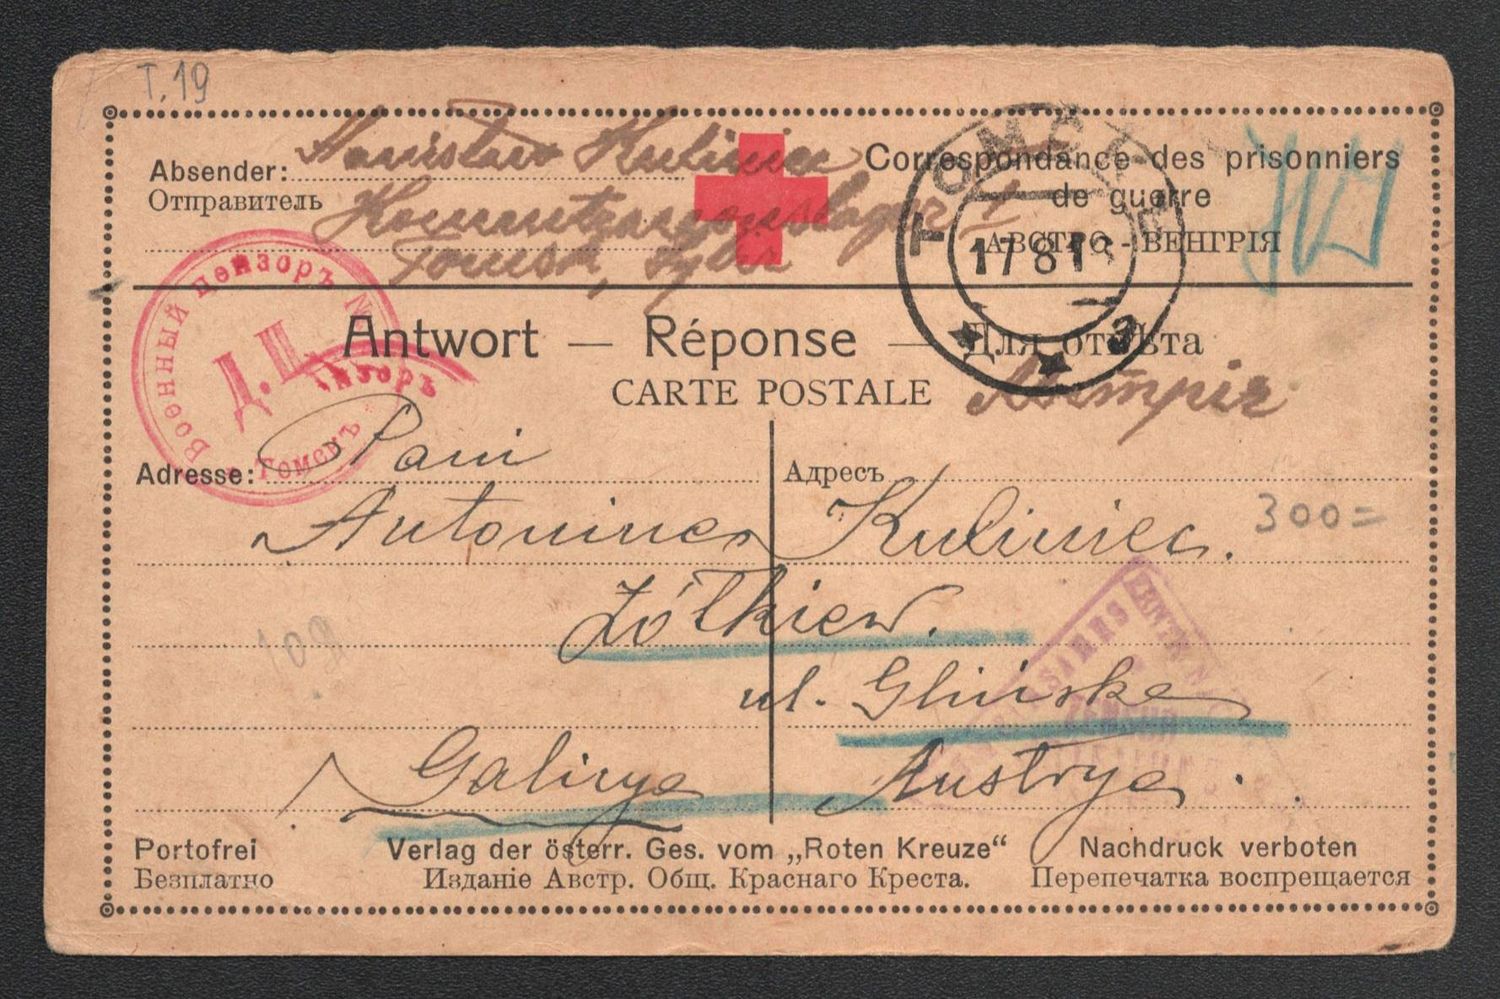 T.19
Absender: Stanisław Kuliniec
Отправитель
Tomsk,
Correspondance des prisonniers
de guerre
АВСТРО-ВЕНГРІЯ
ТОМСКЪ
17 8 1
Военный цензоръ №
Д. Ц.
Томскъ
нзоръ
Antwort — Réponse — Для отвѣта
CARTE POSTALE
Adresse: Pani
Адресъ
Antonina Kuliniec.
300=
Żółkiew.
109
ul. Glińska
Galicya Austrya.
ZENSUR
Portofrei Verlag der österr. Ges. vom „Roten Kreuze“ Nachdruck verboten
Безплатно Изданіе Австр. Общ. Краснаго Креста. Перепечатка воспрещается